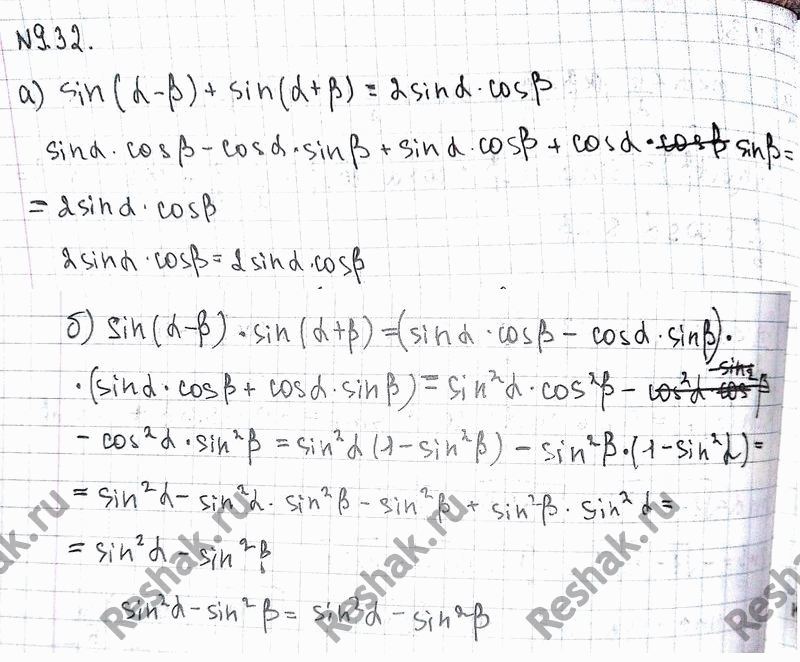 N9.32.
а) sin(α-β)+sin(α+β)=2sinα·cosβ
sinα·cosβ-cosα·sinβ+sinα·cosβ+cosα·sinβ=
=2sinα·cosβ
2sinα·cosβ=2sinα·cosβ
б) sin(α-β)·sin(α+β)=(sinα·cosβ-cosα·sinβ)·
·(sinα·cosβ+cosα·sinβ)=sin²α·cos²β-
-cos²α·sin²β=sin²α(1-sin²β)-sin²β·(1-sin²α)=
=sin²α-sin²α·sin²β-sin²β+sin²β·sin²α=
=sin²α-sin²β
sin²α-sin²β=sin²α-sin²β
ak.ru
Reshak.ru
Reshak.ru
Reshak.ru
Resha